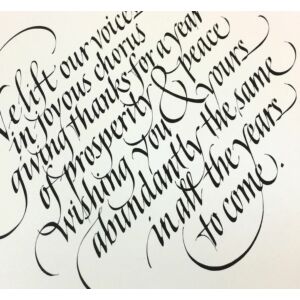 We lift our voices
in joyous chorus
giving thanks for a year
of prosperity & peace
Wishing you yours
abundantly the same
in all the years
to come.